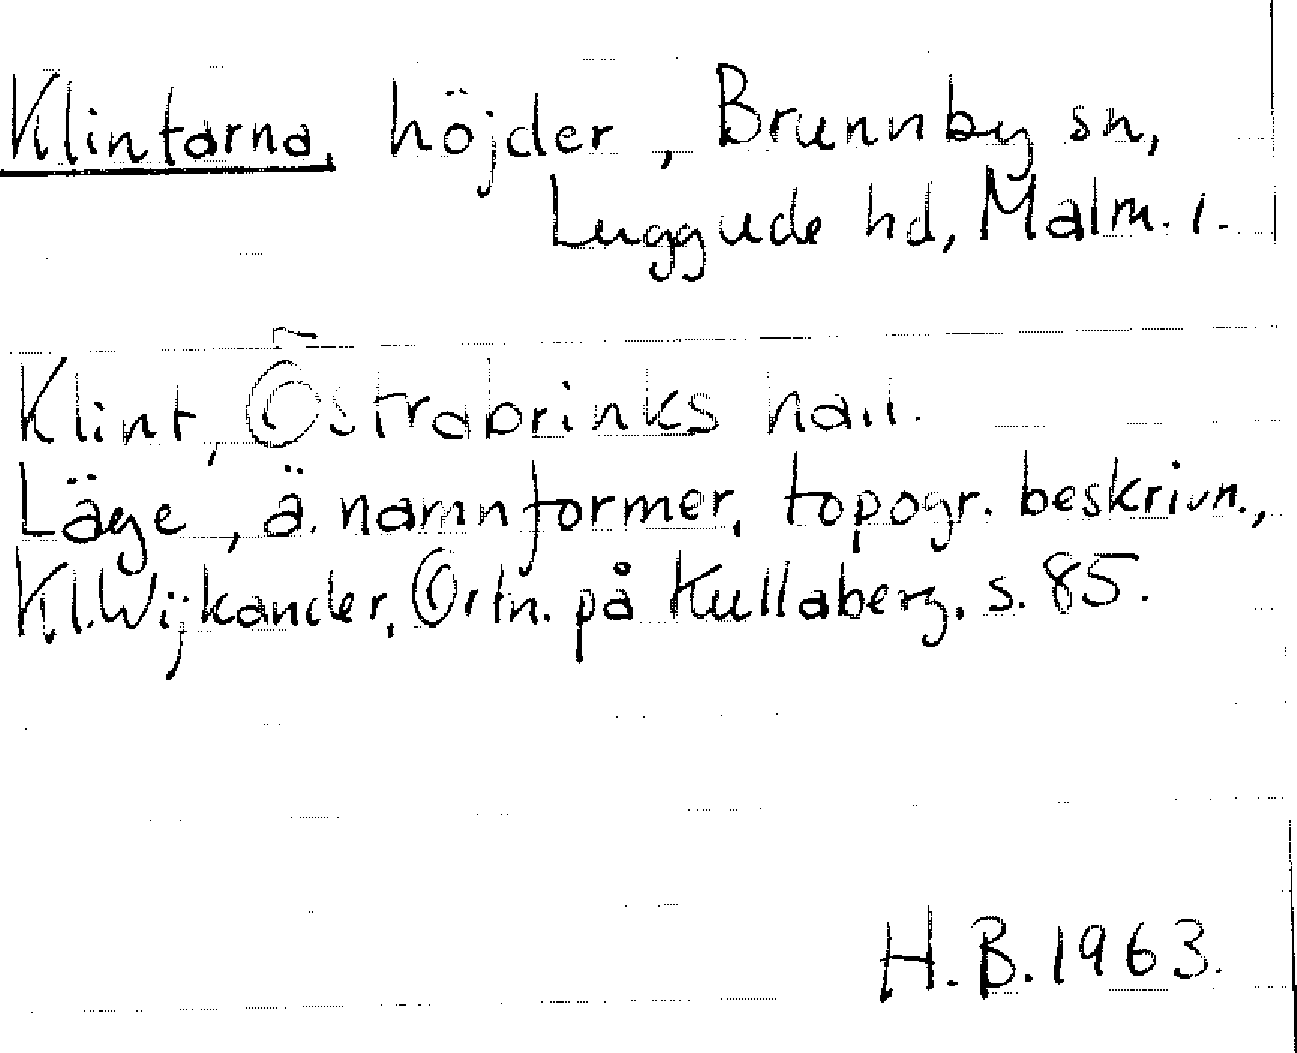 Klintarna, höjder, Brunnby sn,
Luggude hd, Malm. l.
Klint, Östrabrinks hall.
Läge, ä. namnformer, topogr. beskrivn.,
Kl. Wijkander, Ortn. på Kullaberg. s. 85.
H. B. 1963.